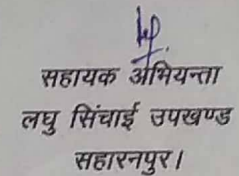 सहायक अभियन्ता
लघु सिंचाई उपखण्ड
सहारनपुर।